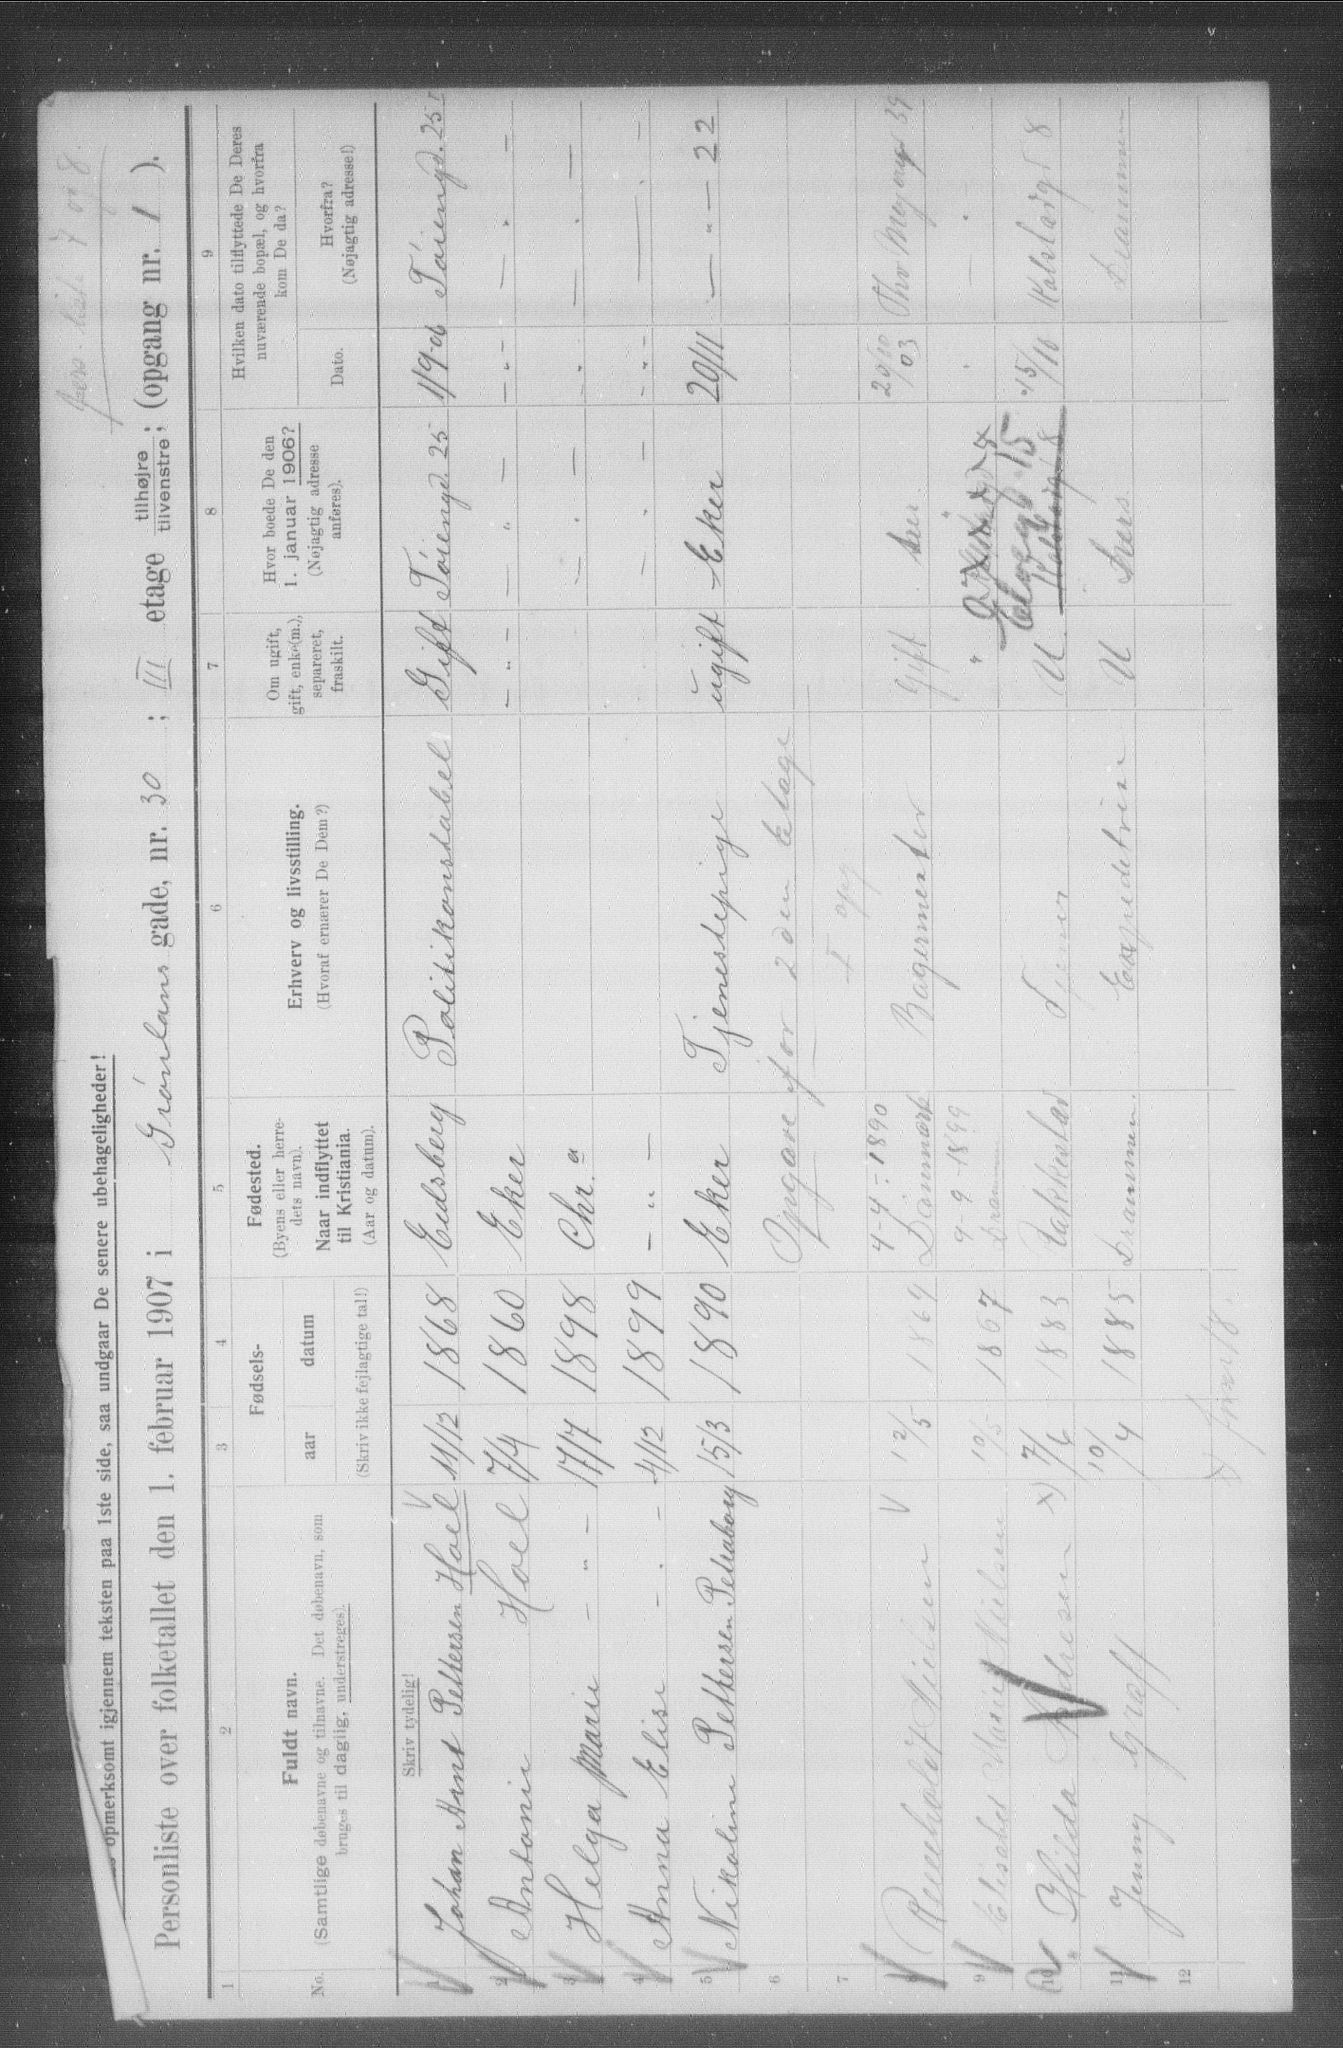 pers. list. 7 og 8.
opmerksomt igjennem teksten paa 1ste side, saa undgaar De senere ubehageligheder!
Personliste over folketallet den 1. februar 1907 i Grønlans gade, nr. 30 ; III etage tilhøjre tilvenstre; (opgang nr. 1 ).
1 2 3 4 5 6 7 8 9
No. Fuldt navn. (Samtlige døbenavne og tilnavne. Det døbenavn, som bruges til daglig, understreges).
Fødsels- aar datum (Skriv ikke fejlagtige tal!)
Fødested. (Byens eller herredets navn). Naar indflyttet til Kristiania. (Aar og datum).
Erhverv og livsstilling. (Hvoraf ernærer De Dem?)
Om ugift, gift, enke(m.), separeret, fraskilt.
Hvor boede De den 1. januar 1906? (Nøjagtig adresse anføres).
Hvilken dato tilflyttede De Deres nuværende bopæl, og hvorfra kom De da? Dato. Hvorfra? (Nøjagtig adresse!)
Skriv tydelig!
1 Johan Arnt Pettersen Hoel V 11/12 1868 Eidsberg Politikonstabel Gift Tøiengd. 25 1/9-06 Tøiengd. 25
2 Antonie Hoel 7/4 1860 Eker - " - - " - - " - - " -
3 Helga Marie - " - 17/7 1898 Chr.a - " - - " - - " -
4 Anna Elise - " - 4/12 1899 - " - - " - - " - - " -
5 Nikoline Pettersen Pedraborg 15/3 1890 Eker Tjenestepige ugift Eker 20/11 - " - 22
6 Opgave for 2den etage
7 I opg
8 Reinholdt Nielsen V 12/5 1869 4-4-1890 Danmark Bagermester Gift her. 20/10 03 Thv Meyersgd 39
9 Elisabet Marie Nielsen 10/5 1867 9-9-1899 Dram " " " - " -
10 Hilda Andresen x) 7/6 1883 Rakkestad Tjener U. 15 Kalstadgd 8 15/16 Kalstadgd 8
11 Jenny Graff 10/4 1885 Drammen. Expeditrise U Drammen
12
x) Frafl.